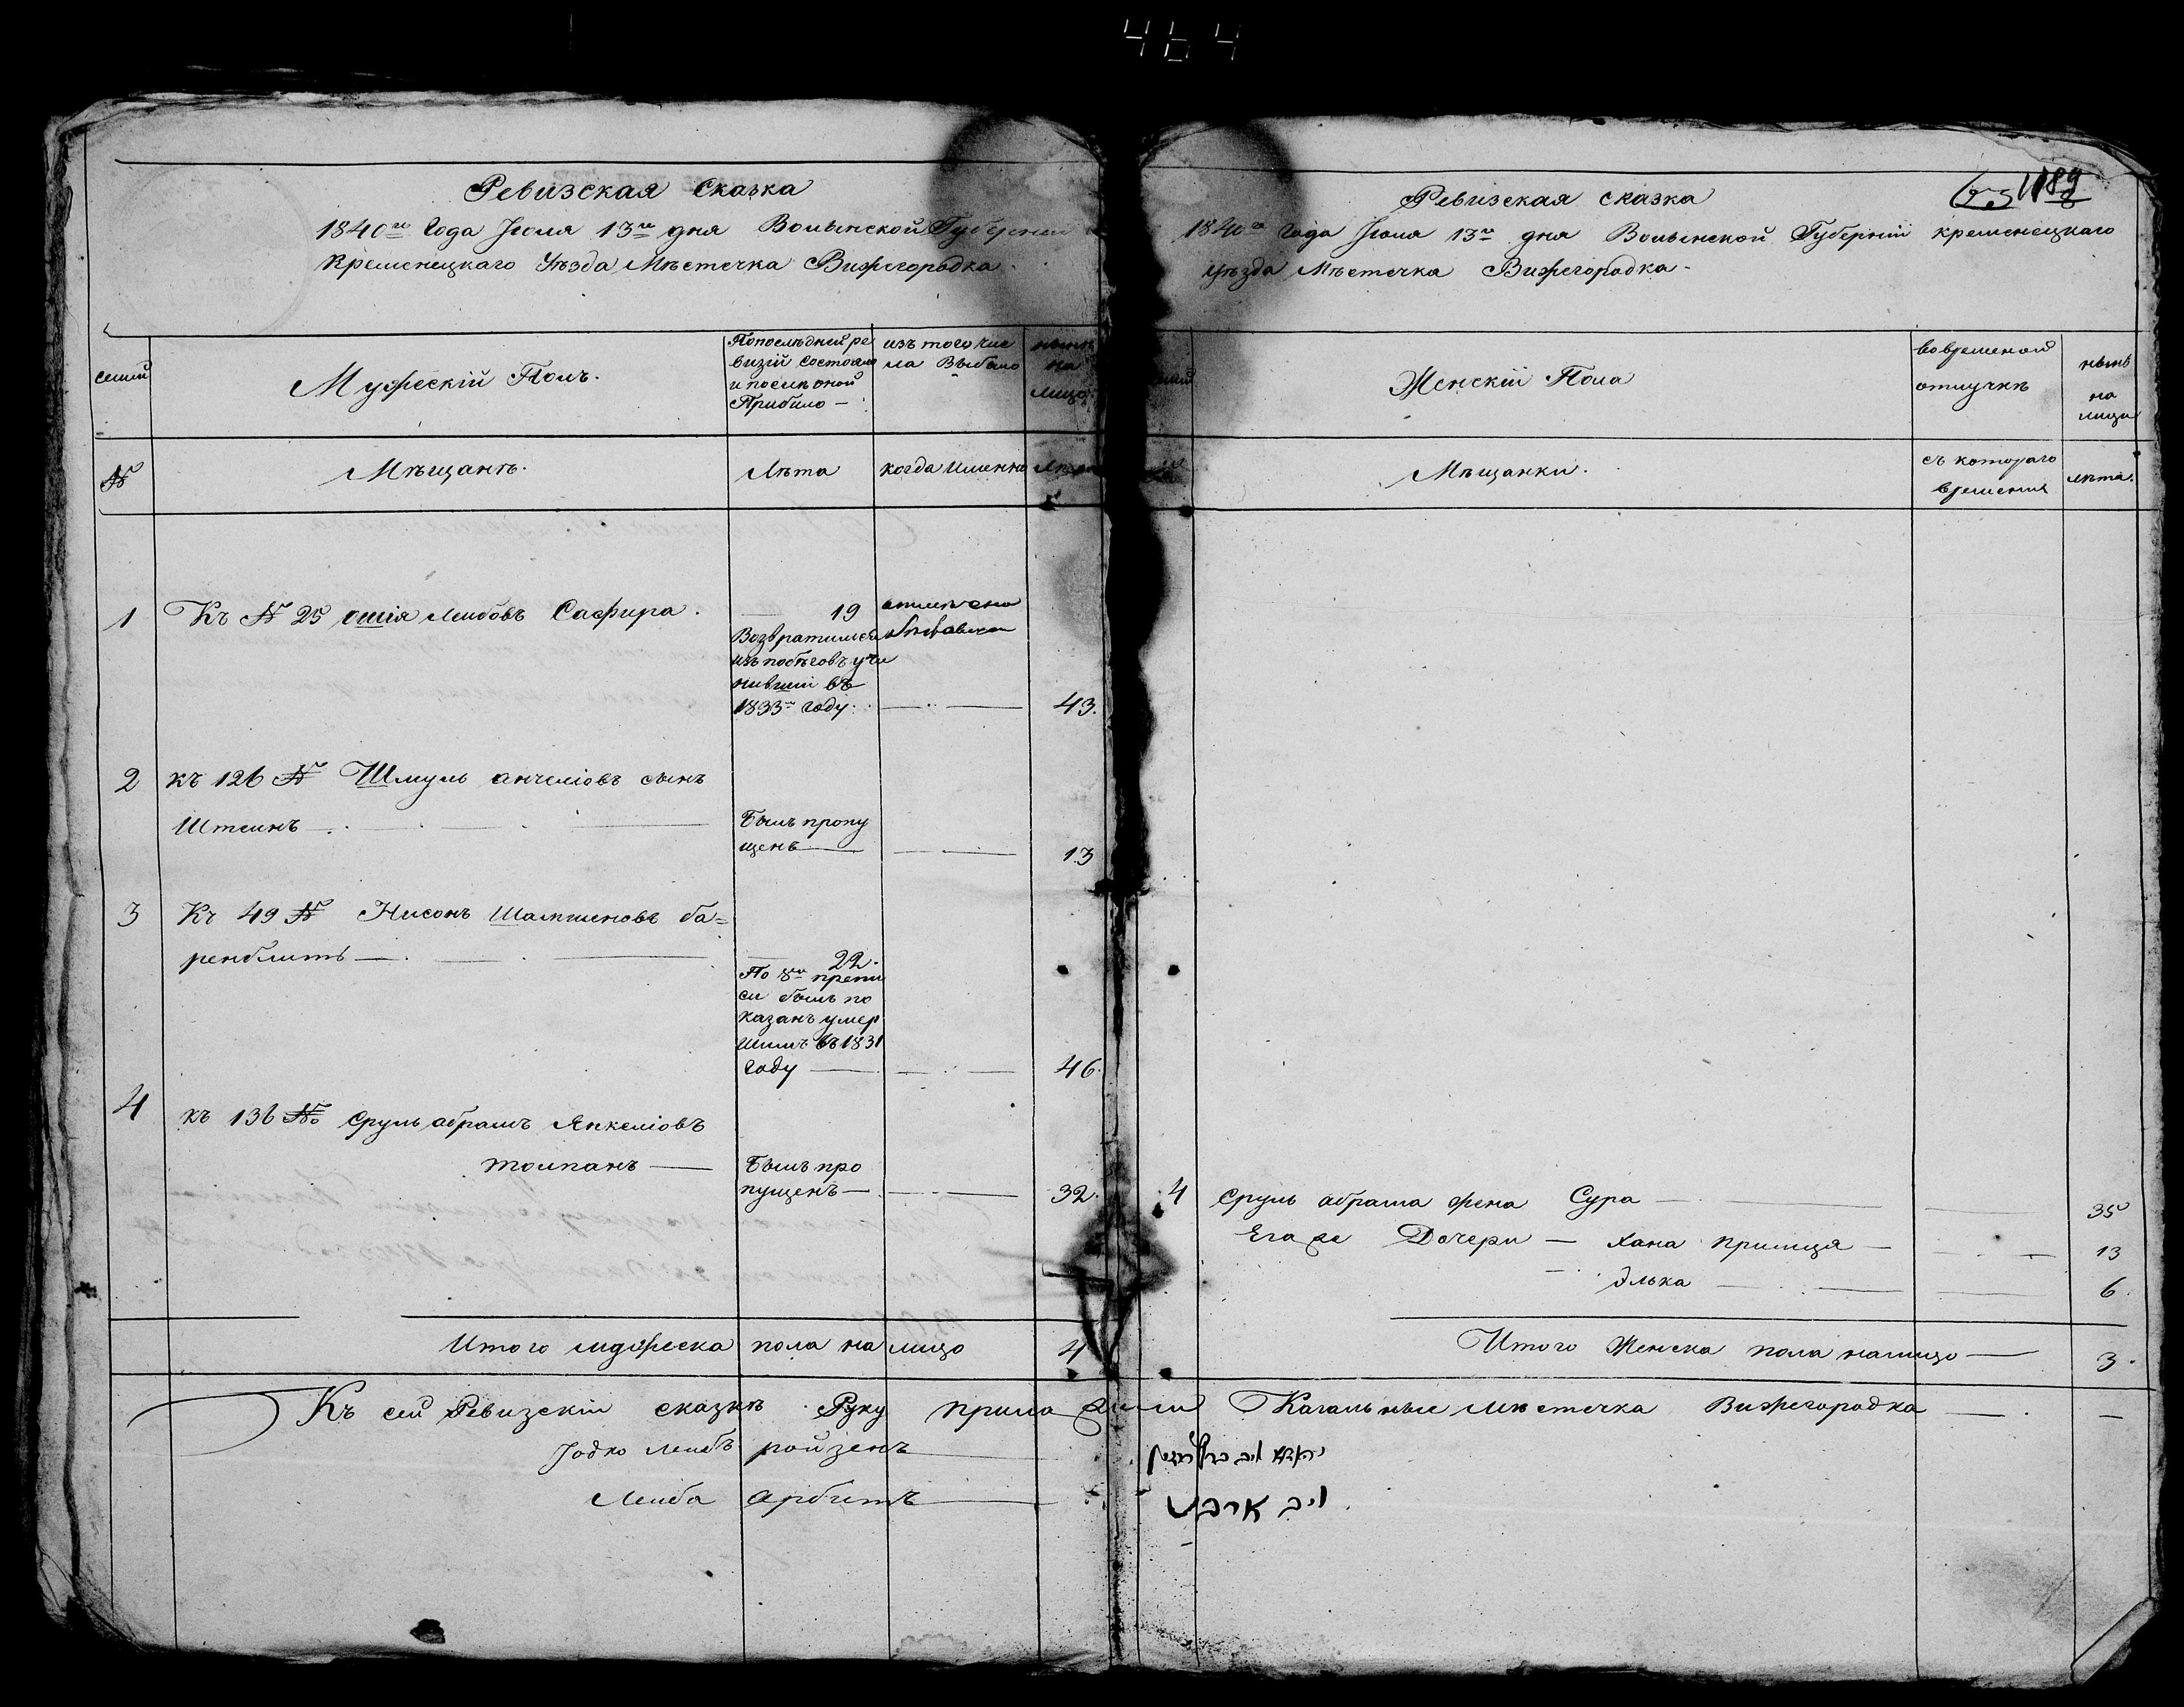 464
Ревизская Сказка
1840го Года Июля 13го дня Волынской Губерний
Кременецкаго Уѣзда Мѣстечка Вижгородка.
семьи
Мужескій Полъ.
Попослѣдней ре
визіи состояло
и послѣ оной
Прибыло —
изъ того чис
ла Выбыло
нынѣ
на
лицо
№
Мѣщанъ.
Лѣта
когда именно
Лѣта
1
Къ № 25 Ошія Лейбовъ Сафира.
19
отмѣчено
Возвратился
изъ побѣговъ учи
нившій въ
1833м году.
43.
2
къ 126 № Шмуль анчеліовъ сынъ
Штейнъ
Былъ пропу
щенъ
13
3
Къ 49 № Нисонъ Шлимпеновъ ба=
ренблитъ
22.
По 8й препи
си былъ по
казанъ умер
шимъ въ 1831
Году
46.
4
къ 136 № Сруль абрамъ Янкеліовъ
толпанъ
Былъ про
пущенъ
32.
Итого мужеска пола на лицо
4
Ревизская сказка
1189
1840го Года Июля 13го дня Волынской Губерній кременецкаго
уѣзда Мѣстечка Вижгородка.
Женскій Пола
вовременой
отлучкѣ
нынѣ
на
лицо
Мѣщанки.
съ котораго
времения
лѣта.
4
Сруль абрама жена Сура
35
Его же Дочери — хана принция —
13
Элька
6.
Итого Женска пола налицо
3.
Къ сей Ревизскій сказкѣ Руку приложили Кагальные Мѣстечка Вижгородка
Іодко Лейбъ ройзенъ
Лейба Арбитъ
ליב ארביט